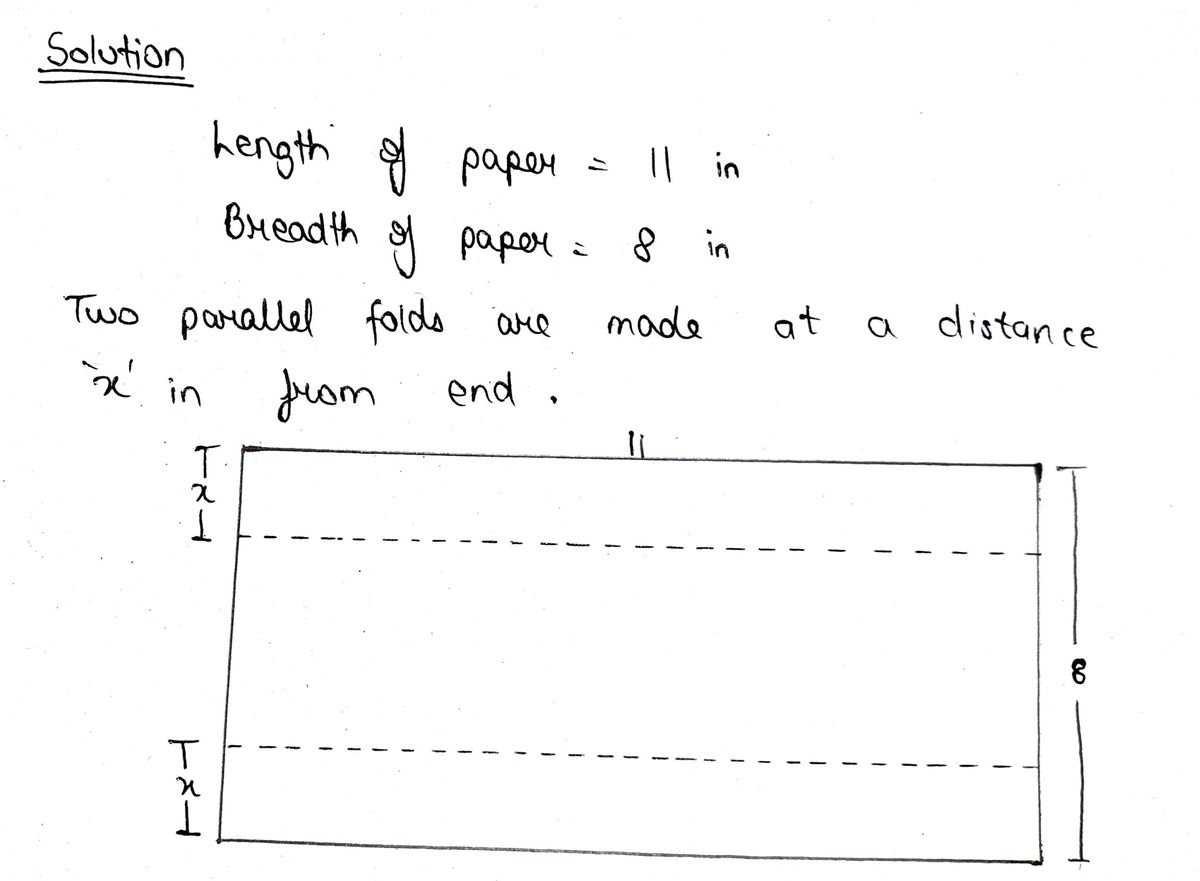 Solution
Length of paper = 11 in
Breadth of paper = 8 in
Two parallel folds are made at a distance
`x' in from end.
11
x
8
x